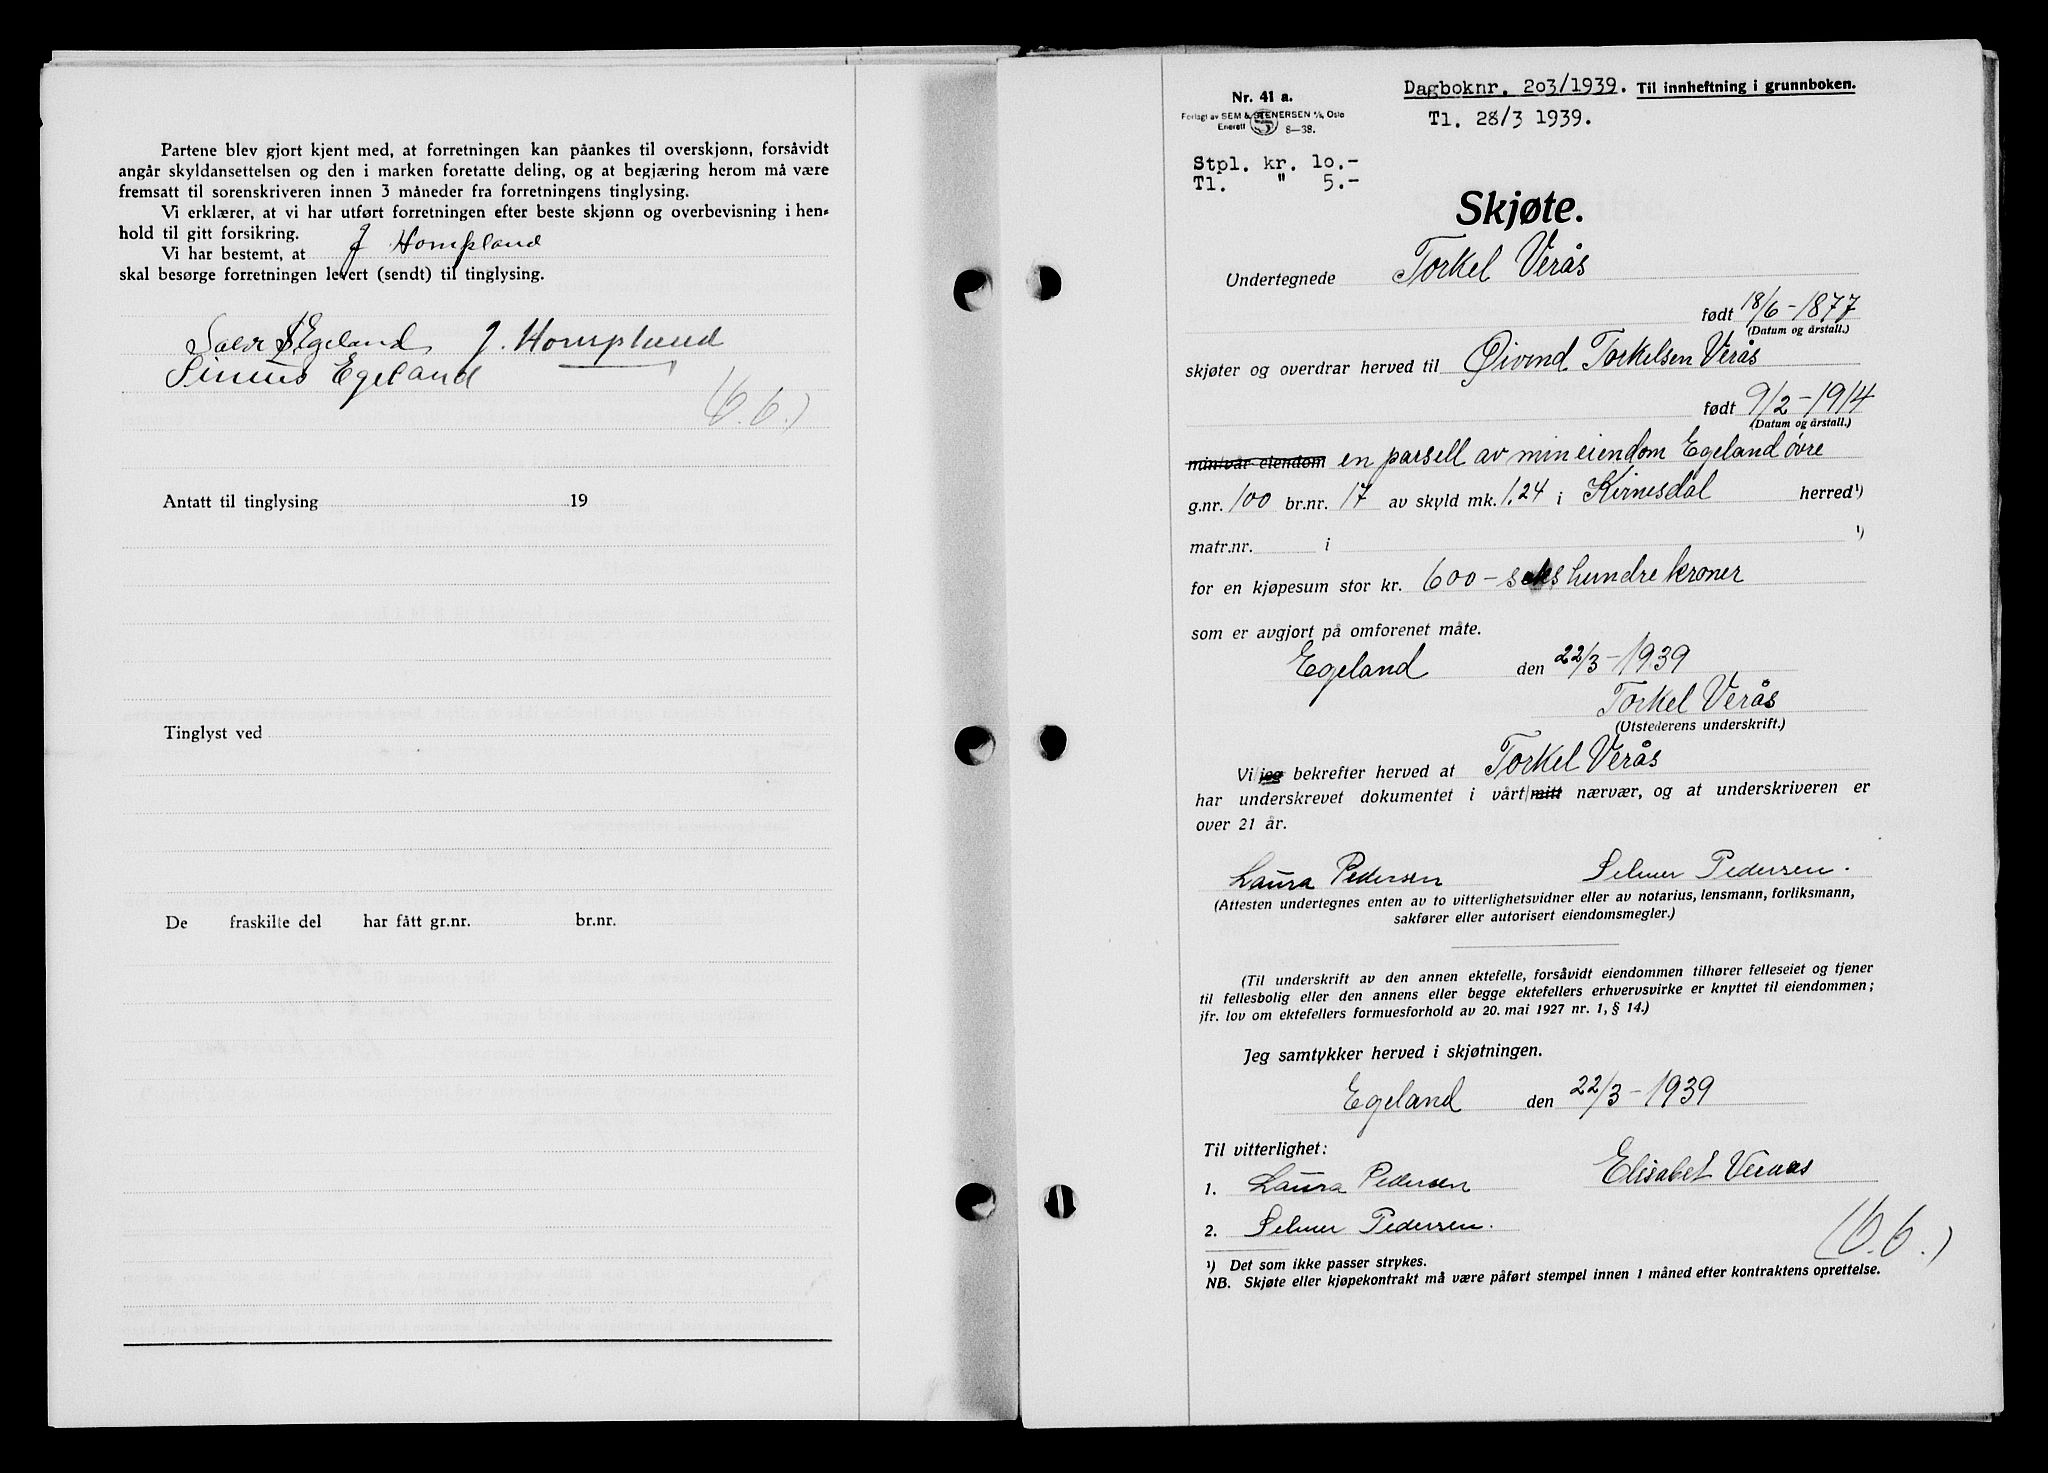 Partene blev gjort kjent med, at forretningen kan påankes til overskjønn, forsåvidt
angår skyldansettelsen og den i marken foretatte deling, og at begjæring herom må være
fremsatt til sorenskriveren innen 3 måneder fra forretningens tinglysing.
Vi erklærer, at vi har utført forretningen efter beste skjønn og overbevisning i hen-
hold til gitt forsikring.
Vi har bestemt, at J Hompland
skal besørge forretningen levert (sendt) til tinglysing.
Egeland J. Hompland
Egeland
Antatt til tinglysing 19
Tinglyst ved
De fraskilte del har fått gr.nr. br.nr.
Dagboknr. 203/1939. Til innheftning i grunnboken.
Nr. 41 a.
Tl. 28/3 1939.
Forlagt av SEM & STENERSEN A/S, Oslo
Enerett S 8—38.
Stpl. kr. 10.-
Tl. " 5.-
Skjøte.
Undertegnede Torkel Verås
født 18/6-1877
(Datum og årstall.)
skjøter og overdrar herved til Øivind Torkelsen Verås
født 9/2-1914
(Datum og årstall.)
min/vår eiendom en parsell av min eiendom Egeland øvre
g.nr. 100 br.nr. 17 av skyld mk. 1.24 i herred¹)
matr.nr. i ¹)
for en kjøpesum stor kr. 600 - seks hundre kroner
som er avgjort på omforenet måte.
Egeland den 22/3-1939
Torkel Verås
(Utstederens underskrift.)
Vi/jeg bekrefter herved at Torkel Verås
har underskrevet dokumentet i vårt/mitt nærvær, og at underskriveren er
over 21 år.
Laura Pedersen Selmer Pedersen.
(Attesten undertegnes enten av to vitterlighetsvidner eller av notarius, lensmann, forliksmann,
sakfører eller autorisert eiendomsmegler.)
(Til underskrift av den annen ektefelle, forsåvidt eiendommen tilhører felleseiet og tjener
til fellesbolig eller den annens eller begge ektefellers erhvervsvirke er knyttet til eiendommen;
jfr. lov om ektefellers formuesforhold av 20. mai 1927 nr. 1, § 14.)
Jeg samtykker herved i skjøtningen.
Egeland den 22/3-1939
Til vitterlighet:
Elisabet Veraas
1. Laura Pedersen
2. Selmer Pedersen.
¹) Det som ikke passer strykes.
NB. Skjøte eller kjøpekontrakt må være påført stempel innen 1 måned efter kontraktens oprettelse.